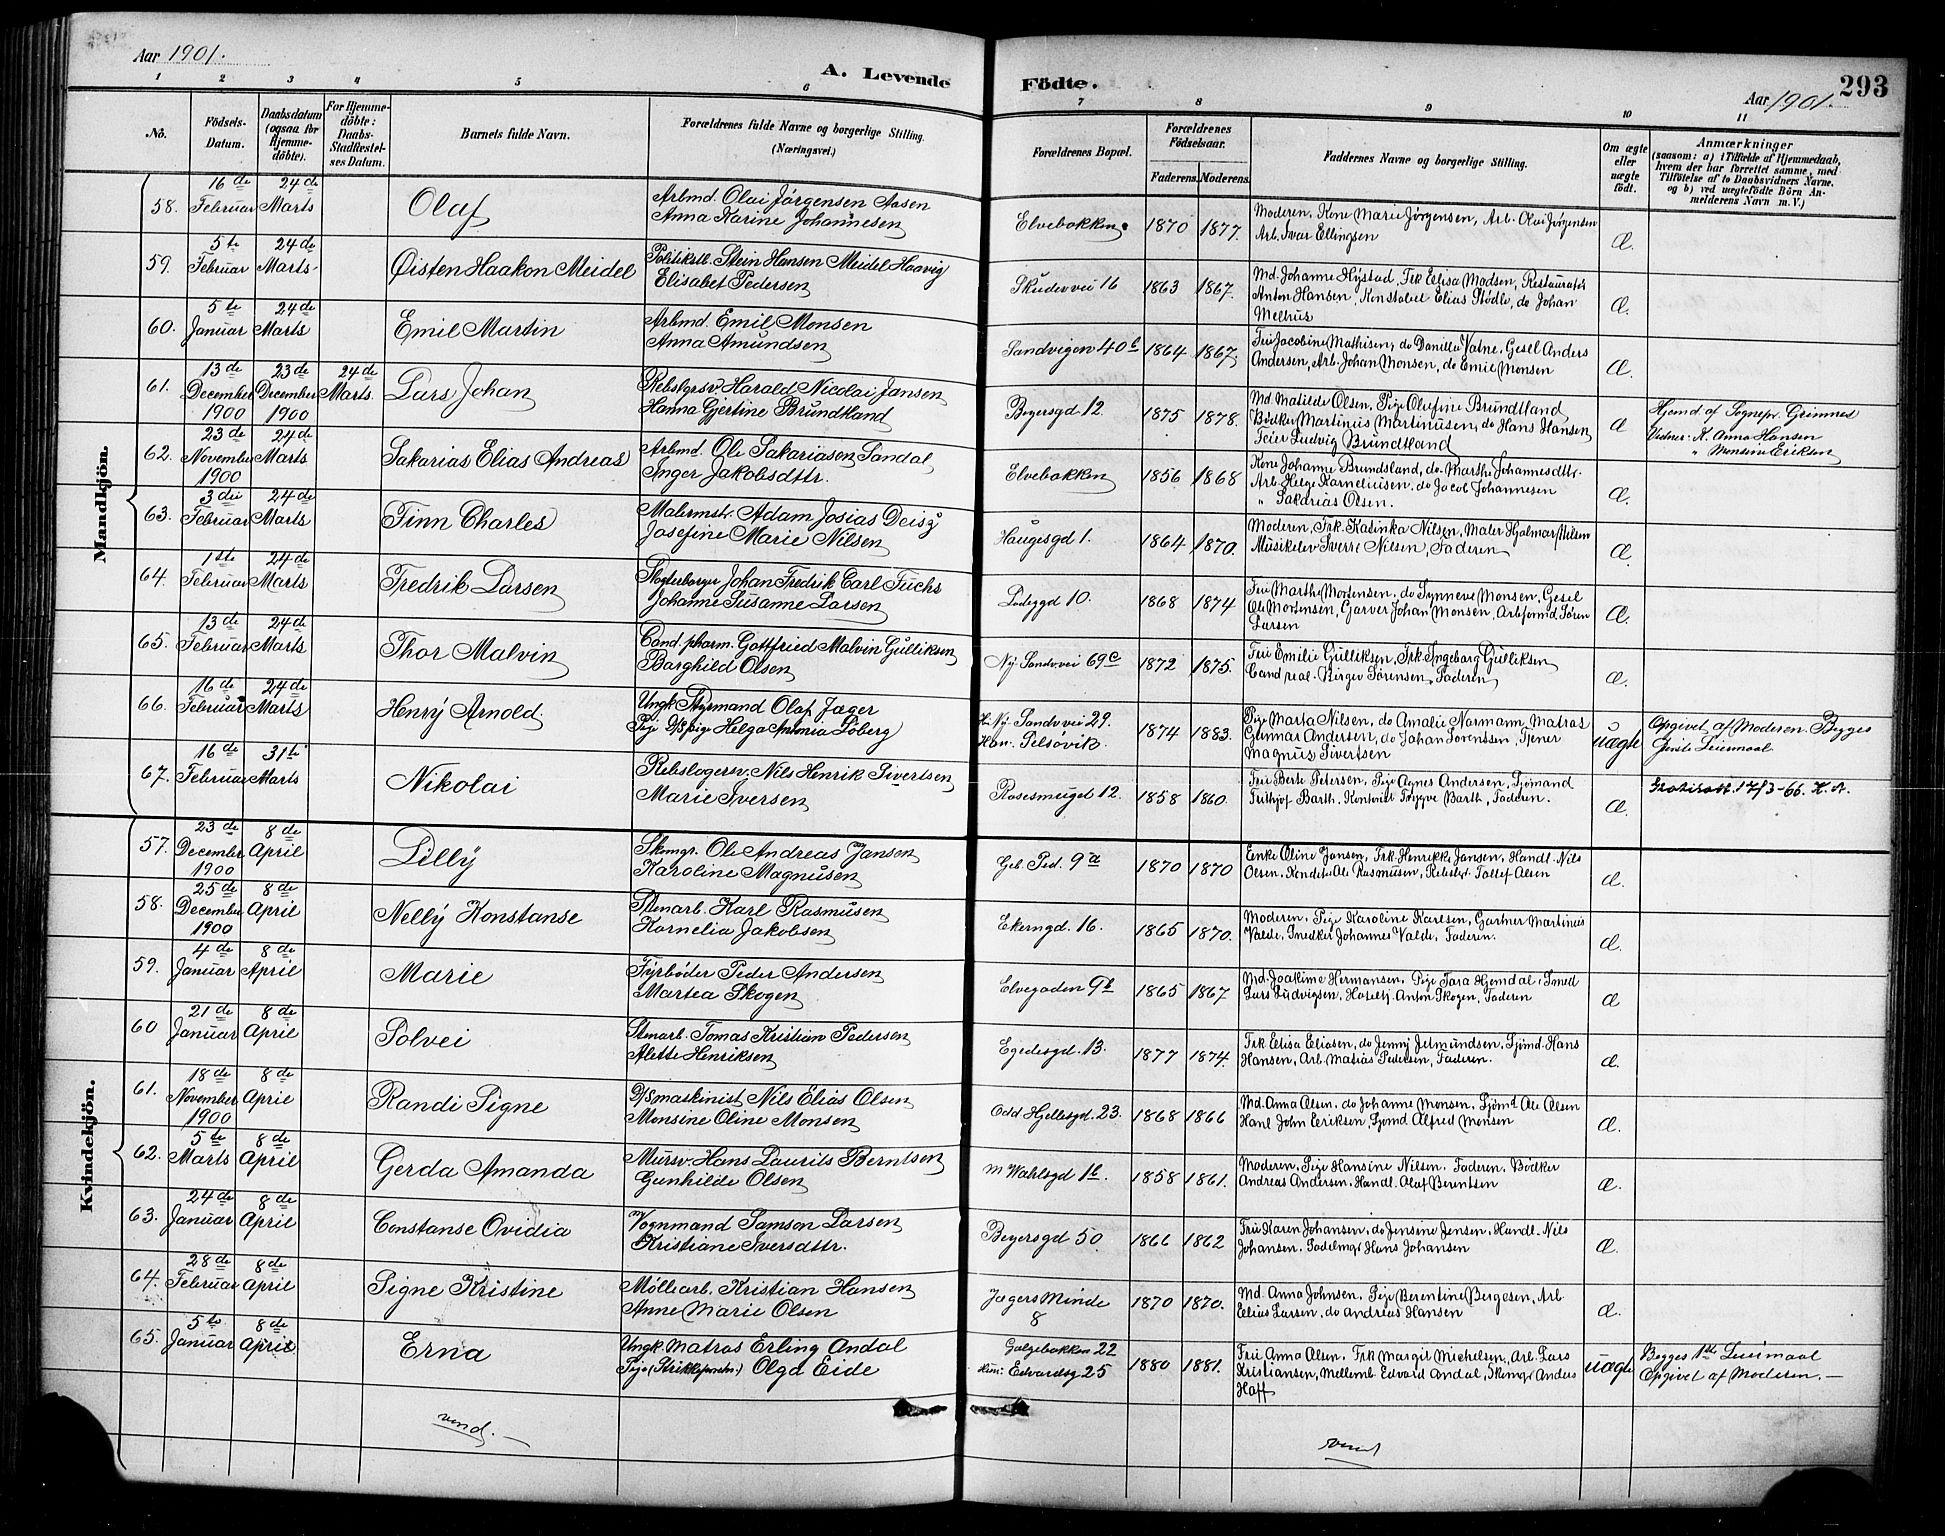 Aar 1901.
A. Levende
Födte.
Aar 1901.
293
1 2 3 4 5 6 7 8 9 10 11
No.
Födsels-Datum.
Daabsdatum (ogsaa for Hjemme-döbte).
For Hjemme-döbte: Daabs-Stadfæstel-ses Datum.
Barnets fulde Navn.
Forældrenes fulde Navne og borgerlige Stilling. (Næringsvei.)
Forældrenes Bopæl.
Forældrenes Födselsaar.
Faderens. Moderens.
Faddernes Navne og borgerlige Stilling.
Om ægte eller uægte födt.
Anmærkninger
(saasom: a) i Tilfælde af Hjemmedaab, hvem der har forrettet samme, med Tilföielse af to Daabsvidners Navne, og b) ved uægtefödte Börn An-melderens Navn m. V.)
Mandkjön.
58. 16de Februar 24de Marts Olaf
Arbmd. Olai Jörgensen Aasen
Anna Karine Johannesen
Elvebakken 1870 1877.
Moderen, Kone Marie Jörgensen, Arb. Olai Jörgensen
Arb. Ivar Ellingsen
Æ.
59. 5te Februar 24de Marts Öisten Haakon Meidel
Politikstb. Stein Hansen Meidel Haavig
Elisabet Pedersen
Skudevei 16 1863 1867.
Md. Johanne Hystad, Frk Elisa Madsen, Restauratör
Anton Hansen, Elias Stödle, do Johan
Melhus
Æ.
60. 5te Januar 24de Marts Emil Martin
Arbmd. Emil Monsen
Anna Amundsen
Sandvigen 40b 1864 1867.
Fru Jacobine Mathisen, do Danilla Vatne, Gesel Anders
Andersen, Arb. Johan Monsen, do Emil Monsen
Æ.
61. 13de December 1900 23de December 1900 24de Marts. Lars Johan
Rebslgrsv. Harald Nicolai Jansen
Hanna Gjertine Brundtland
Beyersgd 12. 1875 1878.
Md. Matilde Olsen, Pige Olefine Brundtland
Bödker Martinus Martinusen, do Hans Hansen
Feier Ludvig Brundtland
Æ
Hjemd af Sognepr. Grimnes
Vidner: K. Anna Hansen
" Monsine Eriksen
62. 23de November 1900 24de Marts Sakarias Elias Andreas
Arbmd. Ole Sakariasen Sandal
Inger Jakobsdttr.
Elvebakken 1856 1868
Kone Johanne Brundsland, do Marthe Johannesdttr.
Arb. Helge Karneliusen, do Jacob Johannesen
" Sakarias Olsen.
Æ.
63. 3die Februar 24de Marts Finn Charles
Malermstr. Adam Josias Deisz
Josefine Marie Nilsen
Haugesgd 1. 1864 1870.
Moderen, Frk. Katinka Nilsen, Maler Hjalmar Nilsen
Musikelev Sverre Nilsen, Faderen
Æ.
64. 1ste Februar 24de Marts Fredrik Larsen
Slagterborger Johan Fredrik Carl Fuchs
Johanne Susanne Larsen
Ladegd 10. 1868 1874
Fru Marthe Mortensen, do Synneve Monsen, Gesel
Ole Mortensen, Garver Johan Monsen, Arbformd. Sören
Larsen
Æ.
65. 13de Februar 24de Marts Thor Malvin
Cand. pharm. Gottfried Malvin Gulliksen
Borghild Olsen
Ny. Sandvvei 69c 1872 1875.
Fru Emilie Gulliksen, Frk. Ingeborg Gulliksen
Cand real. Birger Sörensen, Faderen
Æ.
66. 16de Februar 24de Marts Henry Arnold.
Ungk Styrmand Olaf Jæger
Pige D/Spige Helga Antonia Söberg
H. Ny. Sandvvei 29.
Han: Selsövik. 1874 1883.
Pige Marta Nilsen, do Amalie Normann, Matros
Gunnar Andersen, do Johan Lorentsen, Tjener
Magnus Sivertsen
uægte
Opgivet af Moderen. Begges
Leiemaal
67. 16de Februar 31te Marts Nikolai
Rebslagersv. Nils Henrik Sivertsen
Marie Iversen
Rosesmuget 12. 1858 1860.
Fru Berte Petersen, Pige Agnes Andersen, Sjömand
Frithjof Barth, Kontorist Trygve Barth, Faderen.
Æ.
17/3-66. K. A.
Kvindekjön.
57. 23de December 1900 8de April Lilly
Skomgr. Ole Andreas Jansen
Karoline Magnusen
Geb. Ped. 9a 1870 1870
Enke Oline Jansen, Frk. Henrikke Jansen, Handl. Nils
Olsen, Ole Rasmusen, Rebslgr. Tollef Olsen
Æ.
58. 25de December 1900 8de April Nelly Konstanse
Stenarb. Karl Rasmusen
Kornelia Jakobsen
Ekerngd. 16. 1865 1870.
Moderen, Pige Karoline Karlsen, Gartner Martinus
Valde, Snedker Johannes Valde, Faderen.
Æ.
59. 4de Januar 8de April Marie
Fyrböder Peder Andersen
Martea Skogen
Elvegaden 9b 1865 1867
Md. Joakime Hermansen, Pige Tara Hjemdal, Smed
Lars Ludvigsen, Anton Skogen, Faderen
Æ
60 21de Januar 8de April Solvei
Stenarb. Tomas Kristian Pedersen
Alette Henriksen
Egedesgd. 13. 1877 1874.
Frk. Elisa Eliasen, do Jenny Jetmundsen, Sjömd. Hans
Hansen, Arb. Matias Pedersen, Faderen.
Æ.
61. 18de November 1900 8de April Randi Signe
D/Smaskinist Nils Elias Olsen
Monsine Oline Monsen
Odd Hjeltesgd. 23. 1868 1866
Md. Anna Olsen, do Johanne Monsen, Sjömd Ole Olsen
Hanl John Eriksen, Sjömd Alfred Monsen
Æ.
62. 5te Marts 8de April Gerda Amanda
Mursv. Hans Laurits Berntsen
Gunhilde Olsen
M Wahlsgd 1b. 1858 1861.
Moderen, Pige Hansine Nilsen, Faderen, Bödker
Andreas Andersen, Handl. Olaf Berentsen
Æ.
63. 24de Januar 8de April Constanse Ovidia
Vognmand Samson Larsen
Kristiane Iversdttr.
Beyersgd 50 1866 1862
Fru Karen Johansen, do Jensine Jensen, Handl. Nils
Johansen, Sadelmgr Hans Johansen
Æ.
64. 28de Februar 8de April Signe Kristine
Möllearb. Kristian Hansen
Anne Marie Olsen
Jægers Minde
8 1870 1870.
Md. Anna Johnsen, Pige Berentine Bergesen, Arb
Elias Larsen, do Andreas Hansen
Æ.
65. 5te Januar 8de April Erna
Ungk. Matros Erling Andal
Pige (Strikkefordn.) Olga Eide
Galgebakken 22
Hun: Edvardsg 25 1880 1881.
Fru Anna Olsen, Frk Margit Michelsen, Arb. Lars
Kristiansen, Mellemb Edvard Andal, Skomgr. Anders
Haff
uægte
Begges 1ste Leiemaal
Opgivet af Moderen. —
vend. —
vend